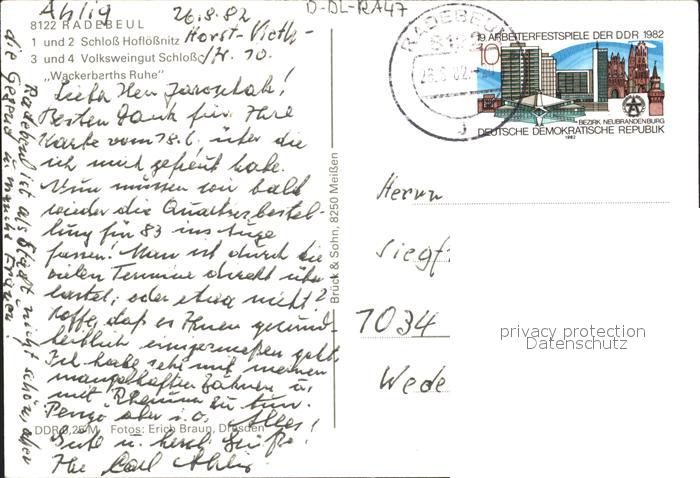 Ahlig
26.8.82
D-DL-RA47
8122 RADEBEUL
1 und 2 Schloß Hoflößnitz
Horst-Vieth-
3 und 4 Volksweingut Schloß
Str. 10.
„Wackerbarths Ruhe"
Lieber Herr
Besten Dank für Ihre
Karte vom 18.6, über die
ich mich gefreut habe.
Nun müssen wir bald
wieder die Quartierbestel-
lung für 83 ins Auge
fassen! Man ist durch die
vielen Termine direkt über-
lastet, oder etwa nicht?
Hoffe, daß es Ihnen gesund-
heitlich einigermaßen geht.
Ich habe sehr mit meinen
mangelhaften Zähnen u.
mit Rheuma zu tun.
aber i.O. Alles
Gute u. herzl. Grüße!
Ihr Carl Ahlig
DDR 0,25 M Fotos: Erich Braun, Dresden
Radebeul ist als Stadt nicht schön, aber
die Gegend u. manche Frauen!
Brück & Sohn, 8250 Meißen
RADEBEUL
8122
19. ARBEITERFESTSPIELE DER DDR 1982
10
BEZIRK NEUBRANDENBURG
DEUTSCHE DEMOKRATISCHE REPUBLIK
1982
Herrn
Siegf
7034
privacy protection
Datenschutz
Wede